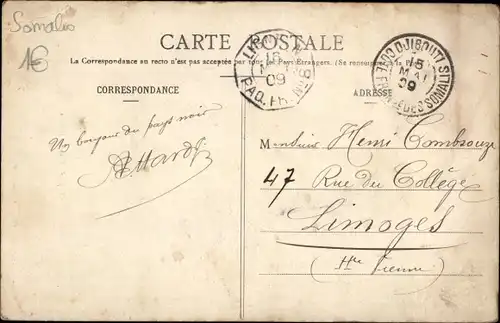 Somalis
1€
CARTE POSTALE
La Correspondance au recto n'est pas acceptée par tous les Pays Étrangers. (Se renseigner à la
CORRESPONDANCE
ADRESSE
16
MAI
09
PAQ. FR. Nº 6
DJIBOUTI
15
MAI
09
CÔTE FRANÇSE DES SOMALIS
Un bonjour du pays noir
Monsieur Henri Combrouze
47 Rue du Collège
Limoges
(Hte Vienne)